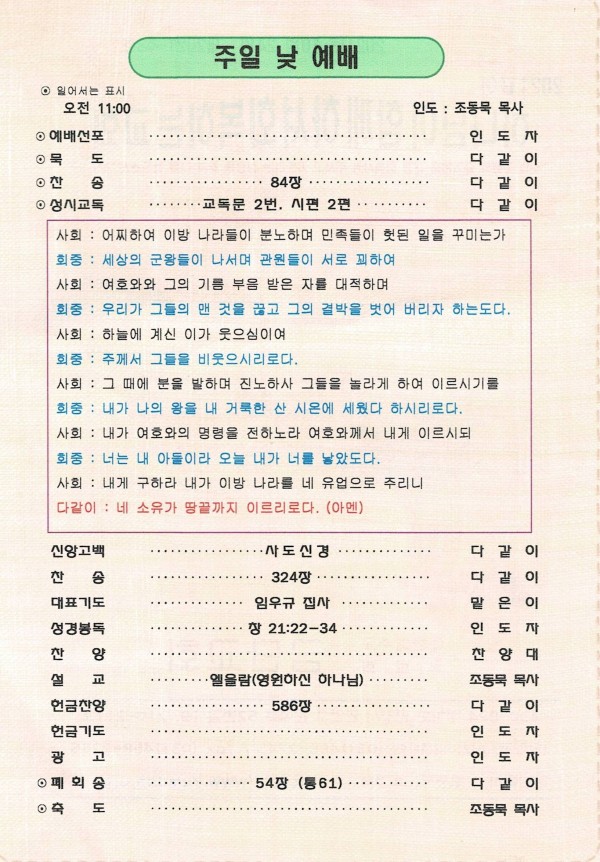 주일 낮 예배
⊙ 일어서는 표시
오전 11:00 인도 : 조동묵 목사
⊙ 예배선포 ······································ 인 도 자
⊙ 묵 도 ······································ 다 같 이
⊙ 찬 송 ········ 84장 ················ 다 같 이
⊙ 성시교독 ·······교독문 2번. 시편 2편·· ······· 다 같 이
사회 : 어찌하여 이방 나라들이 분노하며 민족들이 헛된 일을 꾸미는가
회중 : 세상의 군왕들이 나서며 관원들이 서로 꾀하여
사회 : 여호와와 그의 기름 부음 받은 자를 대적하며
회중 : 우리가 그들의 맨 것을 끊고 그의 결박을 벗어 버리자 하는도다.
사회 : 하늘에 계신 이가 웃으심이여
회중 : 주께서 그들을 비웃으시리로다.
사회 : 그 때에 분을 발하며 진노하사 그들을 놀라게 하여 이르시기를
회중 : 내가 나의 왕을 내 거룩한 산 시온에 세웠다 하시리로다.
사회 : 내가 여호와의 명령을 전하노라 여호와께서 내게 이르시되
회중 : 너는 내 아들이라 오늘 내가 너를 낳았도다.
사회 : 내게 구하라 내가 이방 나라를 네 유업으로 주리니
다같이 : 네 소유가 땅끝까지 이르리로다. (아멘)
신앙고백 ················사도신경 ············· 다 같 이
찬 송 ················ 324장 ················ 다 같 이
대표기도 ·············· 임우규 집사 ············ 맡 은 이
성경봉독 ·············· 창 21:22-34 ············ 인 도 자
찬 양 ······································ 찬 양 대
설 교 ········엘올람(영원하신 하나님) ········ 조동묵 목사
헌금찬양 ················ 586장 ················ 다 같 이
헌금기도 ······································ 인 도 자
광 고 ······································ 인 도 자
⊙ 폐 회 송 ·············· 54장 (통61) ··········· 다 같 이
⊙ 축 도 ······································ 조동묵 목사